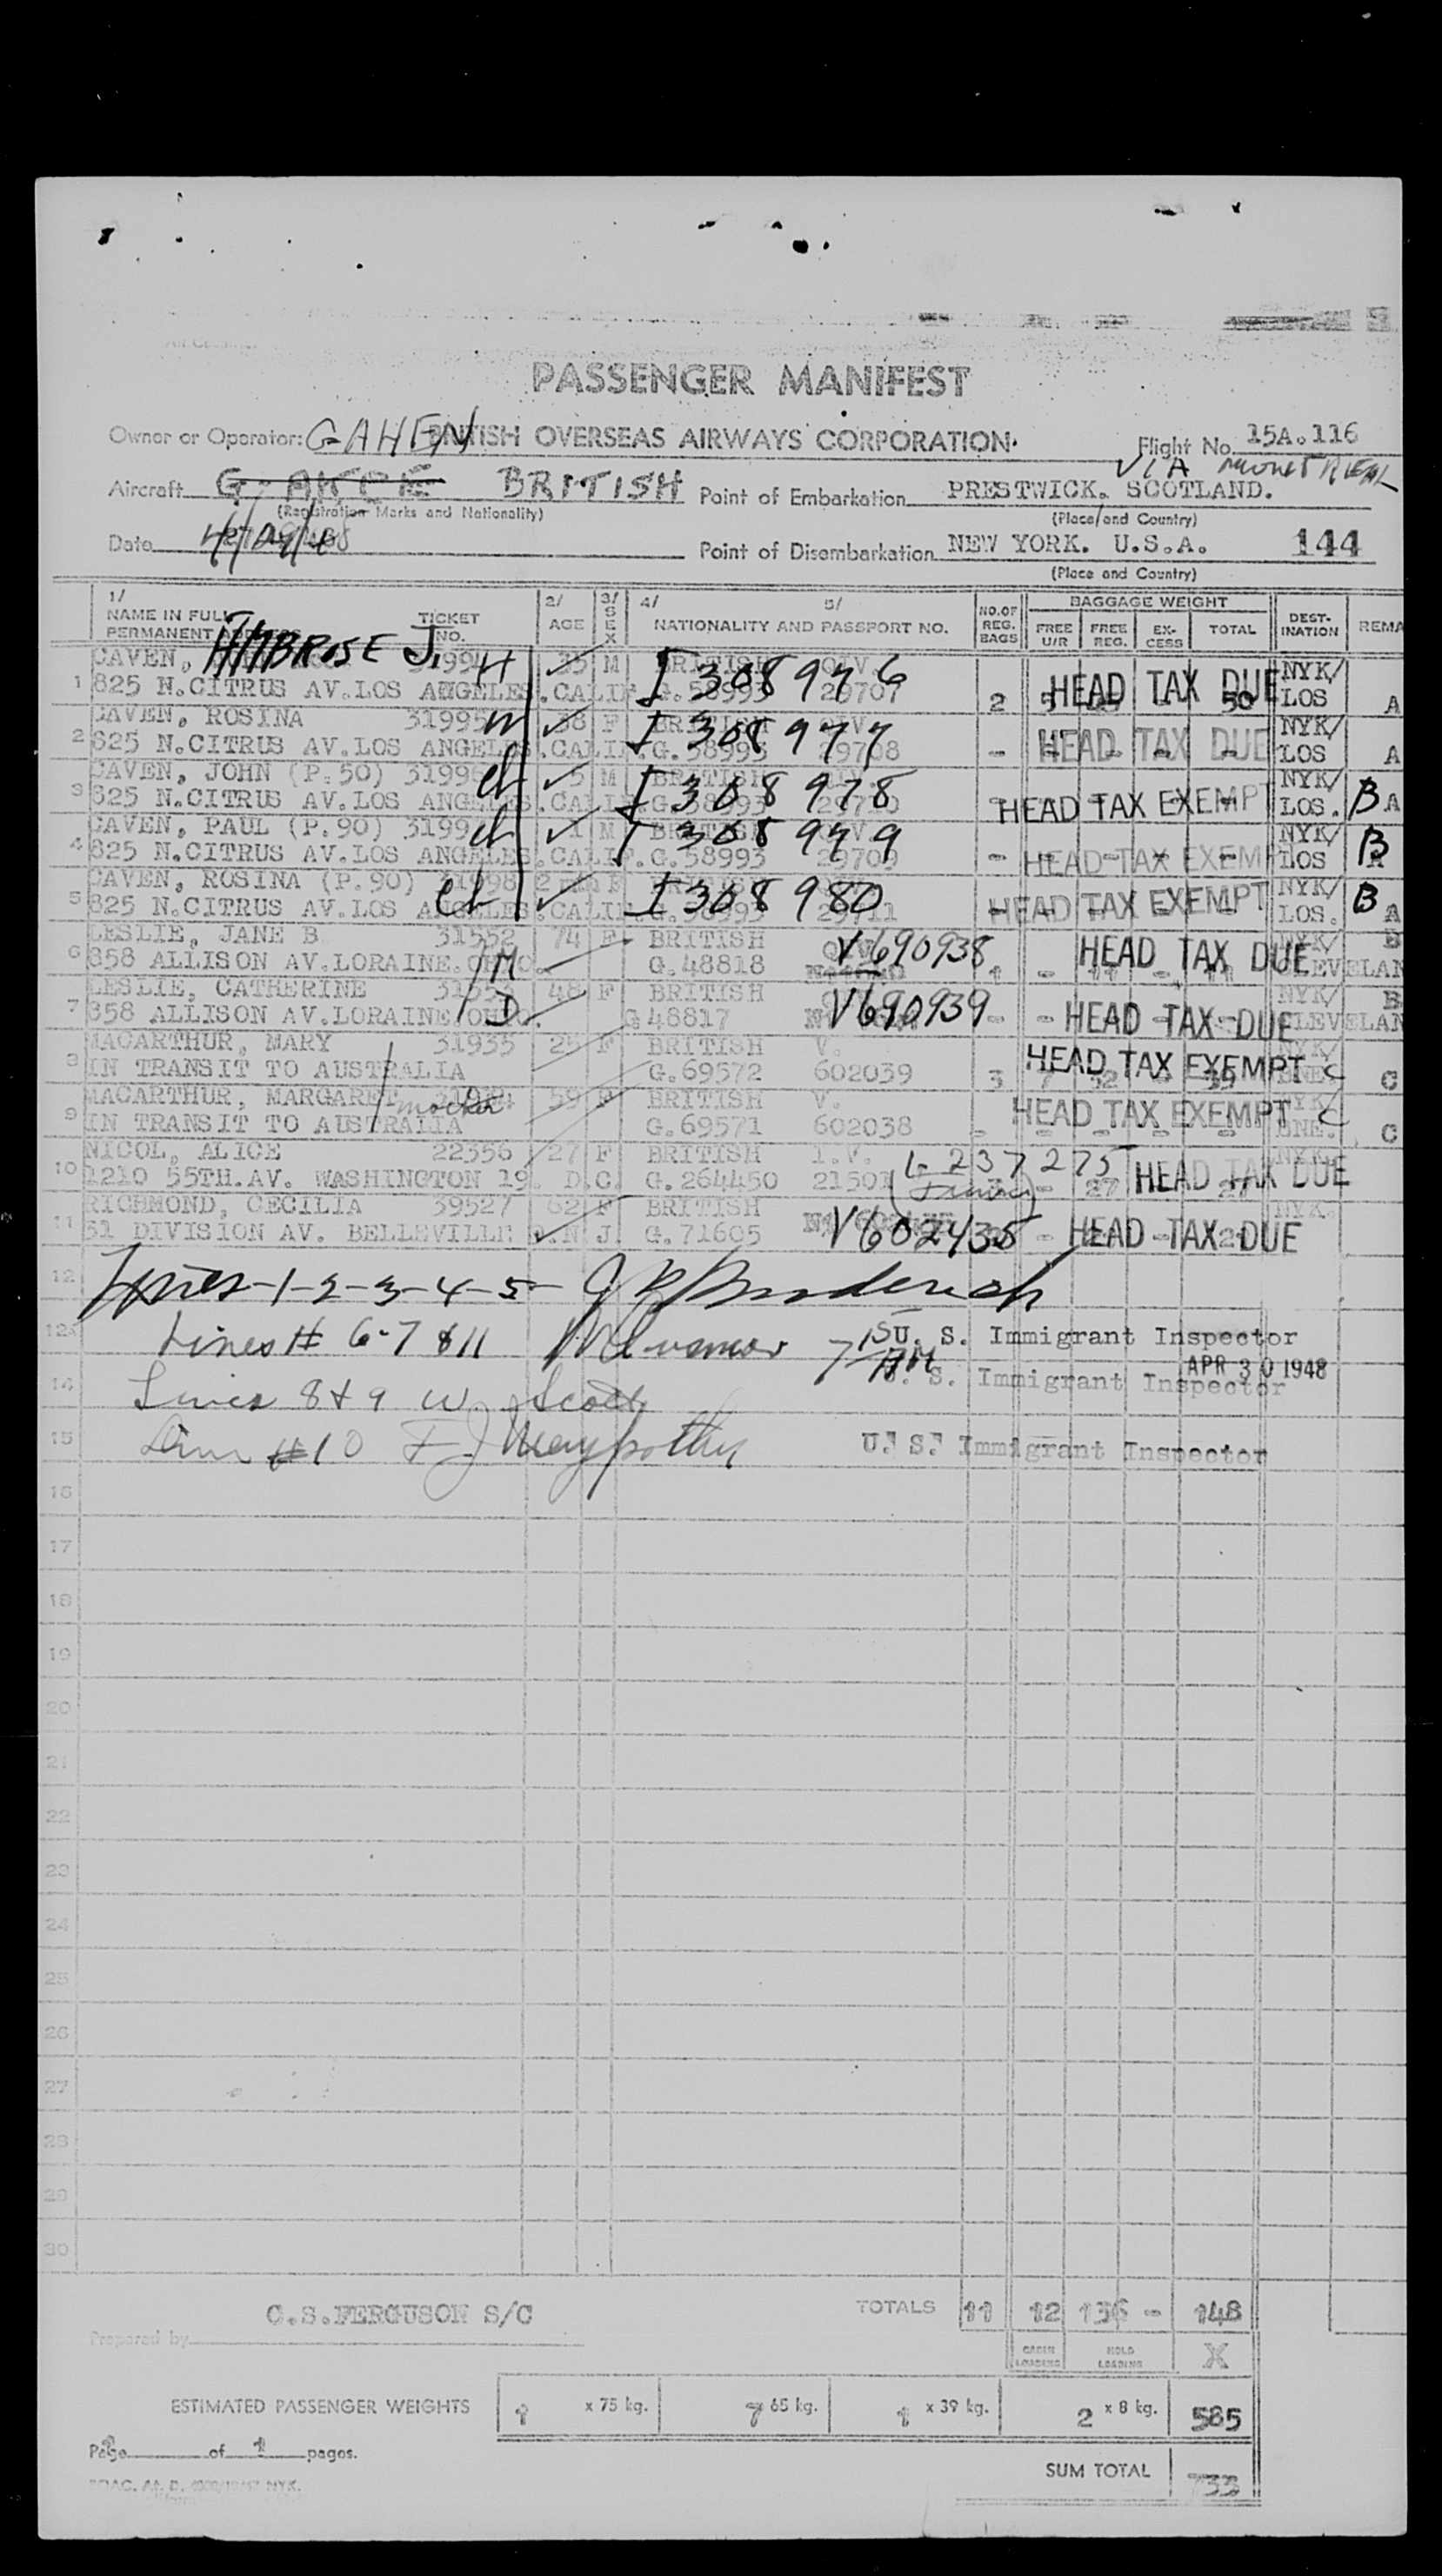 PASSENGER MANIFEST
Owner or Operator: G-AHEN BRITISH OVERSEAS AIRWAYS CORPORATION. Flight No. 15A.116
VIA MONTREAL
Aircraft G-AKCE BRITISH Point of Embarkation PRESTWICK. SCOTLAND.
(Registration Marks and Nationality) (Place and Country)
Date Point of Disembarkation NEW YORK. U.S.A. 144
(Place and Country)
1/ NAME IN FULL PERMANENT TICKET NO. 2/ AGE 3/ SEX 4/ 5/ NATIONALITY AND PASSPORT NO. NO. OF REG. BAGS BAGGAGE WEIGHT FREE U/R FREE REG. EX-CESS TOTAL DEST-INATION REMA
CAVEN, AMBROSE J. H 35 M BRITISH I 308976 HEAD TAX DUE NYK/
1 825 N.CITRUS AV.LOS ANGELES.CALIF. G.58993 29707 2 50 LOS A
CAVEN, ROSINA 31995 M 38 F BRITISH I 308977 NYK/
2 825 N.CITRUS AV.LOS ANGELES.CALIF. G.58993 29708 HEAD TAX DUE LOS A
CAVEN, JOHN (P.50) 3199 ch 5 M BRITISH I 308978 NYK/
3 825 N.CITRUS AV.LOS ANGELES.CALIF. G.58993 HEAD TAX EXEMPT LOS. B A
CAVEN, PAUL (P.90) 3199 ch 1 M BRITISH I 308979 NYK/ B
4 825 N.CITRUS AV.LOS ANGELES.CALIF. G.58993 29709 HEAD TAX EXEM LOS A
CAVEN, ROSINA (P.90) 31998 ch F I 308980 NYK/ B
5 825 N.CITRUS AV.LOS ANGELES.CALIF. G.58993 29711 HEAD TAX EXEMPT LOS. A
LESLIE, JANE B 31552 74 F BRITISH V690938 HEAD TAX DUE NYK/ B
6 358 ALLISON AV.LORAINE.OHIO. M G.48818 1 - 11 - 11 CLEVELAN
LESLIE, CATHERINE 31553 48 F BRITISH V690939 NYK/ B
7 358 ALLISON AV.LORAINE.OHIO. D G 48817 HEAD TAX DUE CLEVELAN
MACARTHUR, MARY 31935 25 F BRITISH V. HEAD TAX EXEMPT NYK/
8 IN TRANSIT TO AUSTRALIA G.69572 602039 3 7 32 - 39 BNE. C C
MACARTHUR, MARGARET mother 59 F BRITISH V. HEAD TAX EXEMPT NYK/ C
9 IN TRANSIT TO AUSTRALIA G.69571 602038 - BNE. C
NICOL, ALICE 22356 27 F BRITISH I.V. L 237275 NYK.
10 1210 55TH.AV. WASHINGTON 19. D.C. G.264450 21501 27 27 HEAD TAX DUE
RICHMOND, CECILIA 39527 62 F BRITISH NYK.
11 51 DIVISION AV. BELLEVILLE N.J. G.71605 V602435 HEAD TAX DUE
12 Lines-1-2-3-4-5- J R Broderick
Lines # 6-7 & 11 U. S. Immigrant Inspector
APR 30 1948
14 Lines 8 & 9 W. J Scott U. S. Immigrant Inspector
15 Line #10 U. S. Immigrant Inspector
16
17
18
19
20
21
22
23
24
25
26
27
28
29
30
C.S.FERGUSON S/C TOTALS 11 12 136 - 148
Prepared by CABIN LOADING HOLD LOADING X
ESTIMATED PASSENGER WEIGHTS 1 x 75 kg. 7 65 kg. 1 x 39 kg. 2 x 8 kg. 585
Page of 1 pages.
SUM TOTAL 733